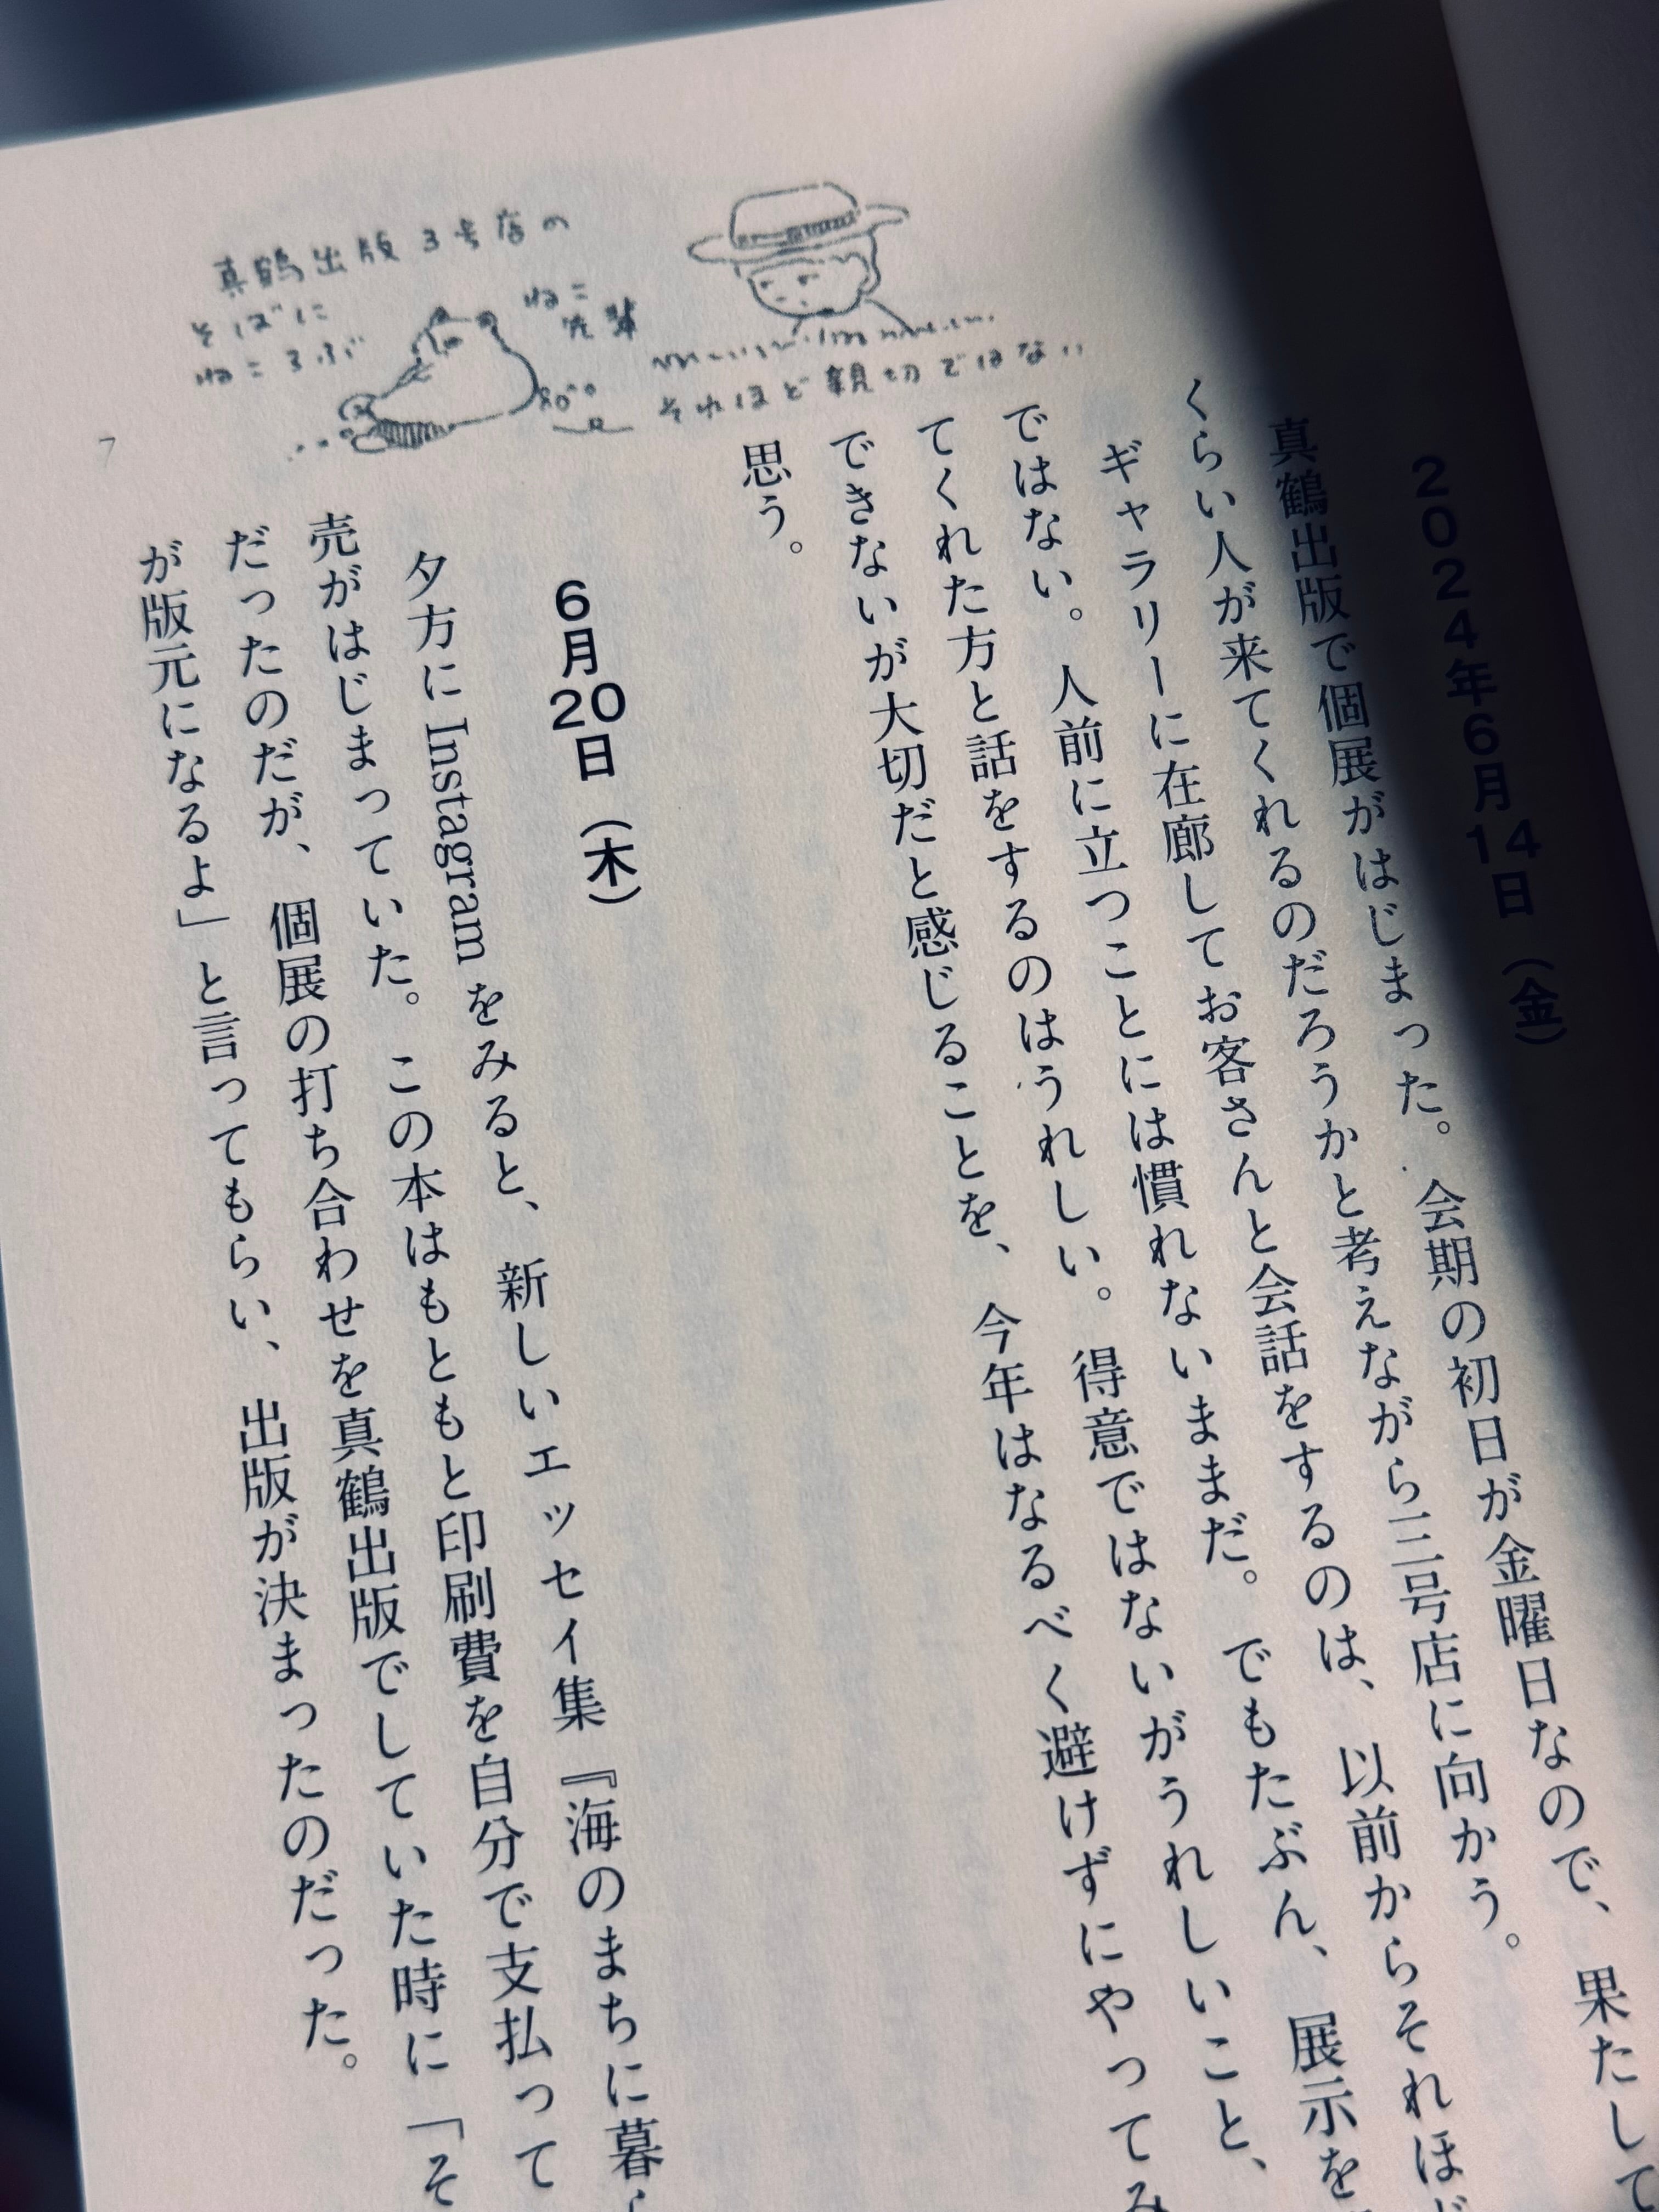 2024年6月14日（金）
真鶴出版で個展がはじまった。会期の初日が金曜日なので、果たして
くらい人が来てくれるのだろうかと考えながら三号店に向かう。
ギャラリーに在廊してお客さんと会話をするのは、以前からそれほど
ではない。人前に立つことには慣れないままだ。でもたぶん、展示を
てくれた方と話をするのはうれしい。得意ではないがうれしいこと、
できないが大切だと感じることを、今年はなるべく避けずにやってみ
思う。
6月20日（木）
夕方に Instagram をみると、新しいエッセイ集『海のまちに暮ら
売がはじまっていた。この本はもともと印刷費を自分で支払って
だったのだが、個展の打ち合わせを真鶴出版でしていた時に「そ
が版元になるよ」と言ってもらい、出版が決まったのだった。
それほど親切ではない
ねこ
先輩
真鶴出版3号店の
そばに
ねころぶ
7